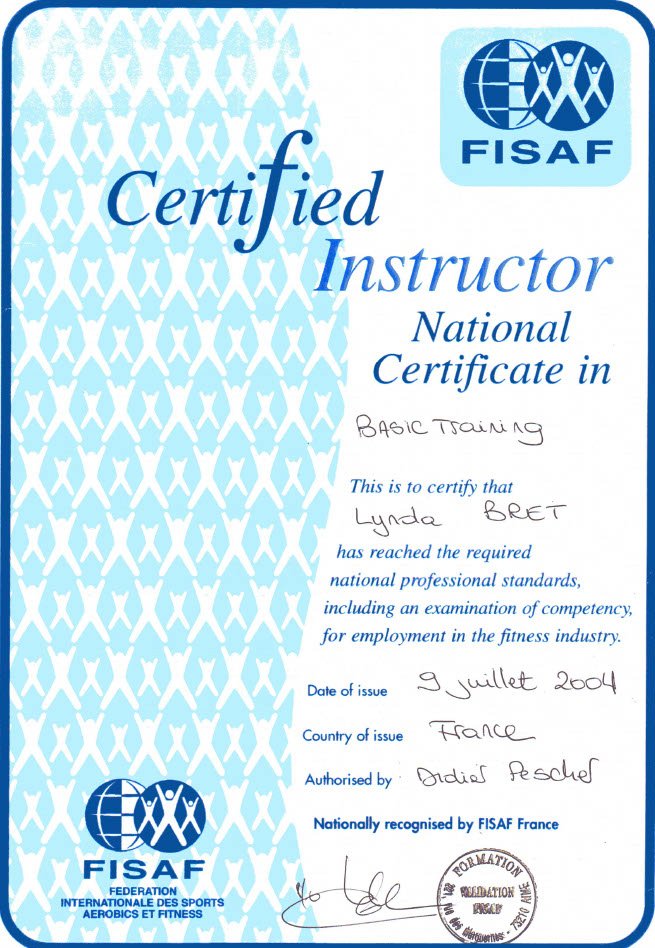 FISAF
Certified
Instructor
National
Certificate in
BASIC Training
This is to certify that
Lynda BRET
has reached the required
national professional standards,
including an examination of competency,
for employment in the fitness industry.
Date of issue 9 juillet 2004
Country of issue France
Authorised by Didier
Nationally recognised by FISAF France
FISAF
FEDERATION
INTERNATIONALE DES SPORTS
AEROBICS ET FITNESS
FORMATION
VALIDATION
FISAF